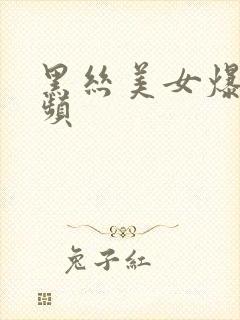 黑絲美女爆
頻
兔子紅